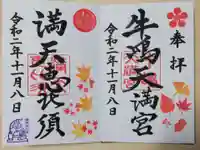 奉拝
牛嶋天満宮
令和二年十一月八日
満天
令和二年十一月八日